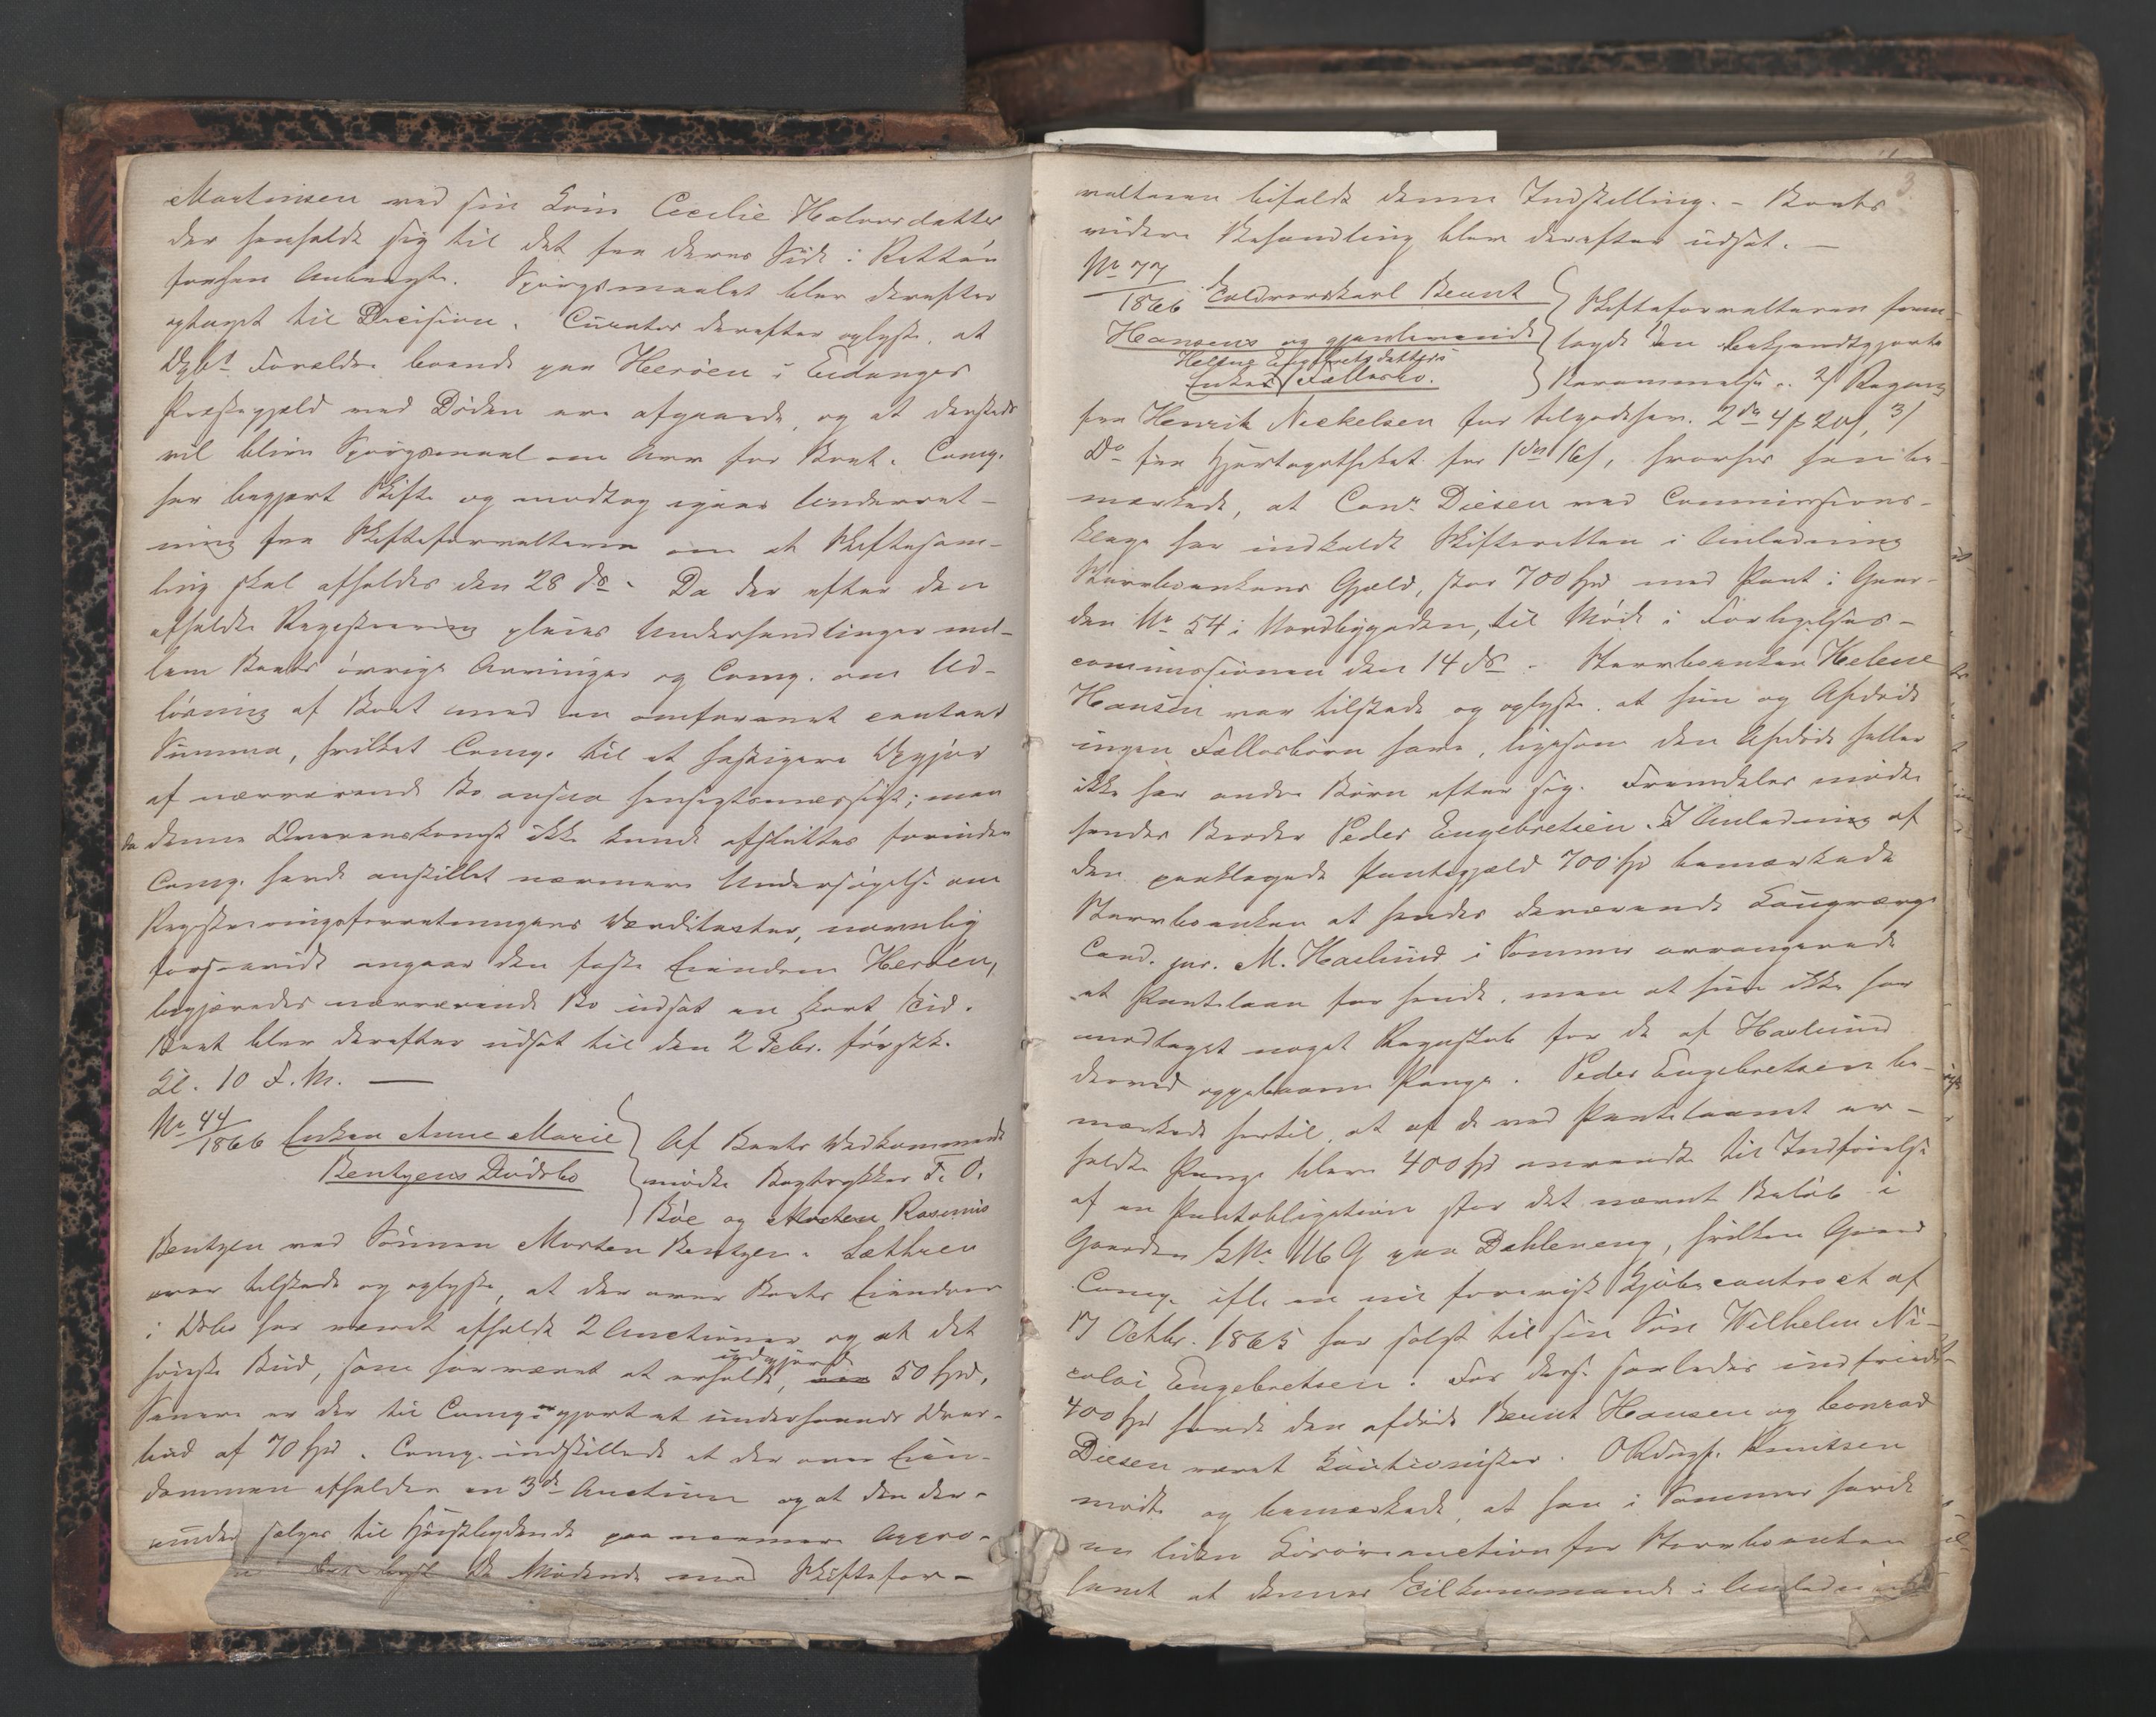 Martinsen med sin Kone Cecilie Halvorsdatter
der henholdt sig til det fra deres Side i Retten
forhen Anbragte. Spörgsmaalet blev derefter
optaget til Decision. Curator derefter oplyste, at
Forældre boende paa Heröen i Eidanger
Præstegjæld ved Döden ere afgaaede, og at dersteds
vil blive Spörgsmaal om Arv for Boet. Comp.
har begjært Skifte og modtog igaar Underret-
ning fra Skifteforvalteren om at Skiftesam-
ling skal afholdes den 28 ds. Da der efter den
afholdte Registrering pleies Underhandlinger mel-
lem Boets övrige Arvinger og Comp. om Ud-
lösning af Boet med en omforenet contant
Summa, hvilket Comp. til at hastigere Opgjör
af nærværende Bo ansaa hensigtsmæssigt; men
da denne Overenskomst ikke kunde afsluttes forinden
Comp. havde anstillet nærmere Undersögelse om
Registreringsforretningens Værditaxter, navnlig
forsaavidt angaar den faste Eiendom Heröen,
begjæredes nærværende Bo udsat en kort Tid.
Boet blev derefter udsat til den 2 Febr. förstk.
Kl. 10 F.M. —
No 44/1866 Enken Anne Marie
Bentzens Dödsbo
Af Boets Vedkommende
mödte Bogtrykker F. O.
Böe og Morten Rasmus
Bentzen med Sönnen Morten Bentzen. Læthren
var tilstede og oplyste, at der over Boets Eiendom
i Voldbo har været afholdt 2 Auctioner og at det
höieste Bud, som har været at erholde, udgjorde 50 Spd.
Senere er der til Comp. gjort et underhaands Over-
bud af 70 Spd. Comp. indstillede at der over Eien-
dommen afholdes en 3de Auction og at den der-
under sælges til Höistbydende paa nærmere Appro-
De Mödende med Skiftefor-
valteren bifaldt denne Indstilling. – Boets
videre Behandling blev derefter udsat. —
3
No 77/1866 Bent
Hansens og gjenlevende
Helene Engebretsdatters
Enkes Fællesbo.
Skifteforvalteren frem-
lagde 1) en bekjendtgjort
Berammelse. 2) Regning
fra Henrik Nickelsen for tilgodehav. 2 da 4 þ 20 s, 3)
Do fra Hjorteapotheket for 1 da 16 s, hvorhos han be-
mærkede, at Conr. Diesen ved Commissions-
klage har indkaldt Skifteretten i Anledning
Stervboenkens Gjæld, stor 700 Spd med Pant i Gaar-
den No 54 i Nordbygaden, til Möde i Forligelses-
commissionen den 14 ds. Stervboenken Helene
Hansen var tilstede og oplyste at hun og Afdöde
ingen Fællesbörn have, ligesom den Afdöde heller
ikke har andre Börn efter sig. Fremdeles mödte
hendes Broder Peder Engebretsen. I Anledning af
den paaklagede Pantegjæld 700 Spd bemærkede
Stervboenken at hendes daværende Laugværge
Cand. jur. M. Haslund i Sommer arrangerede
et Pantelaan for hende, men at hun ikke har
modtaget noget Regnskab for de af Haslund
derved oppebaarne Penge. Peder Engebretsen be-
mærkede hertil, at af de ved Pantelaanet er-
holdte Penge blev 400 Spd anvendt til Indfrielse
af en Pantobligation stor det nævnte Belöb i
Gaarden LNo 116 G paa Dahleneng, hvilken Gaard
Comp. ifl. en nu foreviist Kjöbecontract af
17 Octbr. 1865 har solgt til sin Sön Wilhelm Ni-
colai Engebretsen. For disse saaledes indfriede
400 Spd havde den afdöde Bernt Hansen og Conrad
Diesen været Cautionister. Knutsen
mödte og bemærkede, at han i Sommer havde
en liden Lösöreauction for Stervboenken
samt at dennes Tilkommende i Anledning